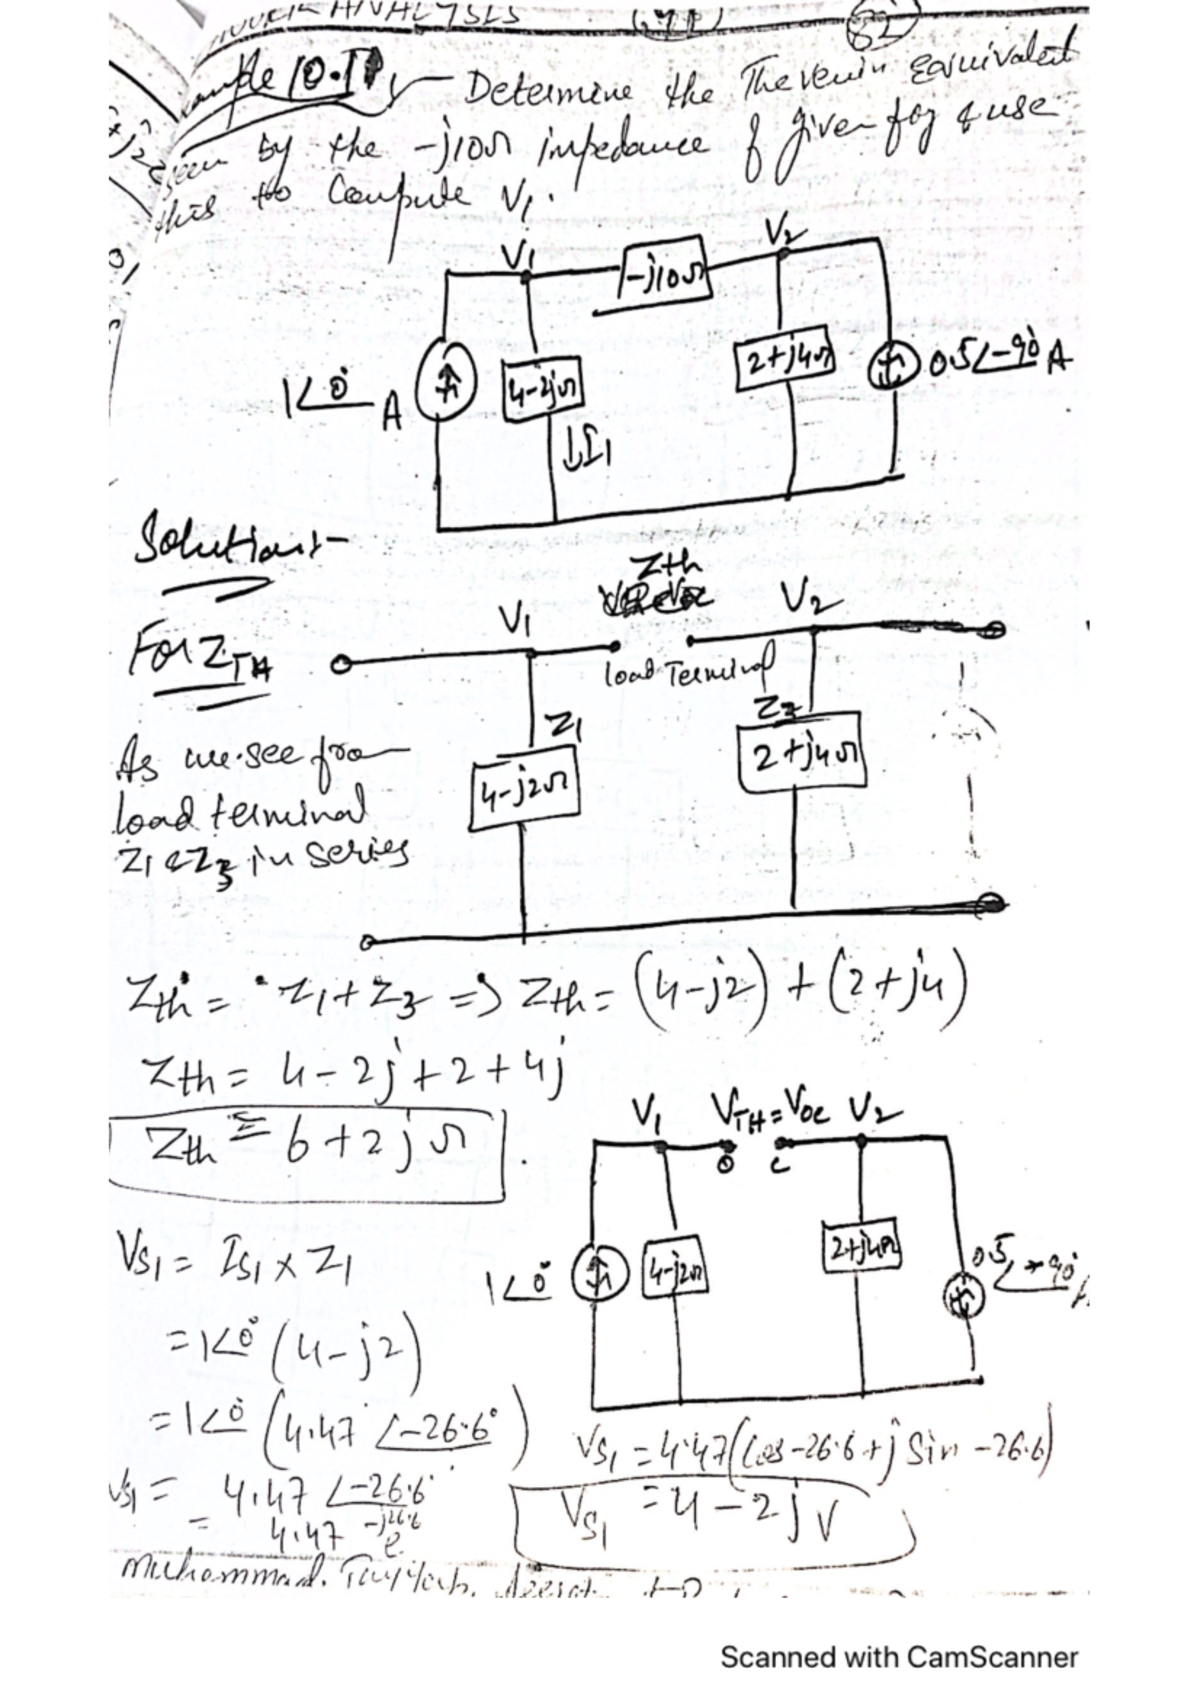 ANALYSIS
82
Determine the Thevenin Equivalent
seen by the -j10Ω impedance of given fog & use
this to Compute V1.
V1
-j10Ω
V2
1∠0° A
4-2jΩ
2+j4Ω
0.5∠-90° A
↓I1
Solution:-
Zth
For ZTH
V1
V2
load Terminal
Z1
Z3
4-j2Ω
2+j4Ω
As we see from
load terminal
Z1 & Z3 in series
Zth = Z1+Z3 => Zth = (4-j2) + (2+j4)
Zth = 4-2j+2+4j
Zth = 6+2jΩ
V1 VTH=Voc V2
o c
1∠0°
4-j2Ω
2+j4Ω
0.5∠-90° A
VS1 = IS1 x Z1
= 1∠0° (4-j2)
= 1∠0° (4.47∠-26.6°)
VS1 = 4.47∠-26.6°
= 4.47 e-j26.6
VS1 = 4.47(Cos-26.6+j Sin-26.6)
VS1 = 4-2j V
Scanned with CamScanner